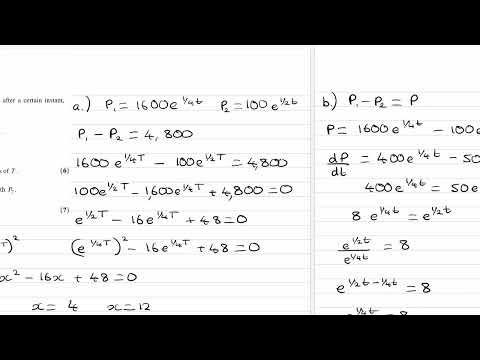 after a certain instant,
s of T.
(6)
th P₂.
(7)
T)²
x² - 16x + 48 = 0
x = 4 x = 12
a.) P₁ = 1600e^(1/4 t) P₂ = 100e^(1/2 t)
P₁ - P₂ = 4,800
1600e^(1/4 T) - 100e^(1/2 T) = 4,800
100e^(1/2 T) - 1,600e^(1/4 T) + 4,800 = 0
e^(1/2 T) - 16e^(1/4 T) + 48 = 0
(e^(1/4 T))² - 16e^(1/4 T) + 48 = 0
b) P₁ - P₂ = P
P = 1600e^(1/4 t) - 100e
dP/dt = 400e^(1/4 t) - 50
400e^(1/4 t) = 50e
8 e^(1/4 t) = e^(1/2 t)
e^(1/2 t)/e^(1/4 t) = 8
e^(1/2 t - 1/4 t) = 8